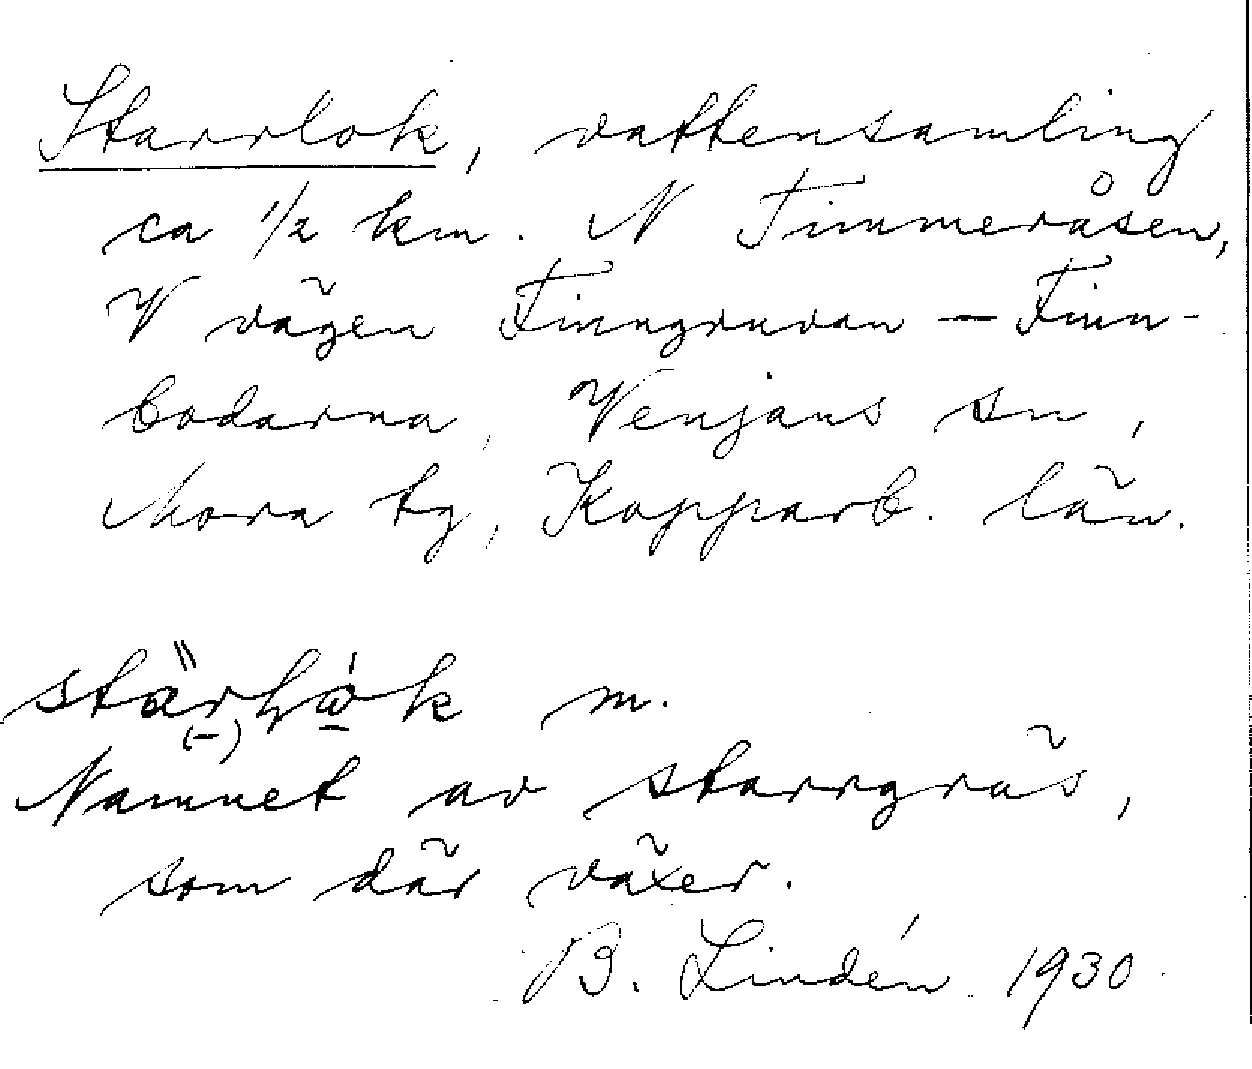 Starrlok, vattensamling
ca 1/2 km. N Timmeråsen,
V vägen Finngruvan — Finn-
bodarna, Venjans sn,
Mora tg, Kopparb. län.
m.
Namnet av starrgräs,
som där växer.
B. Lindén 1930